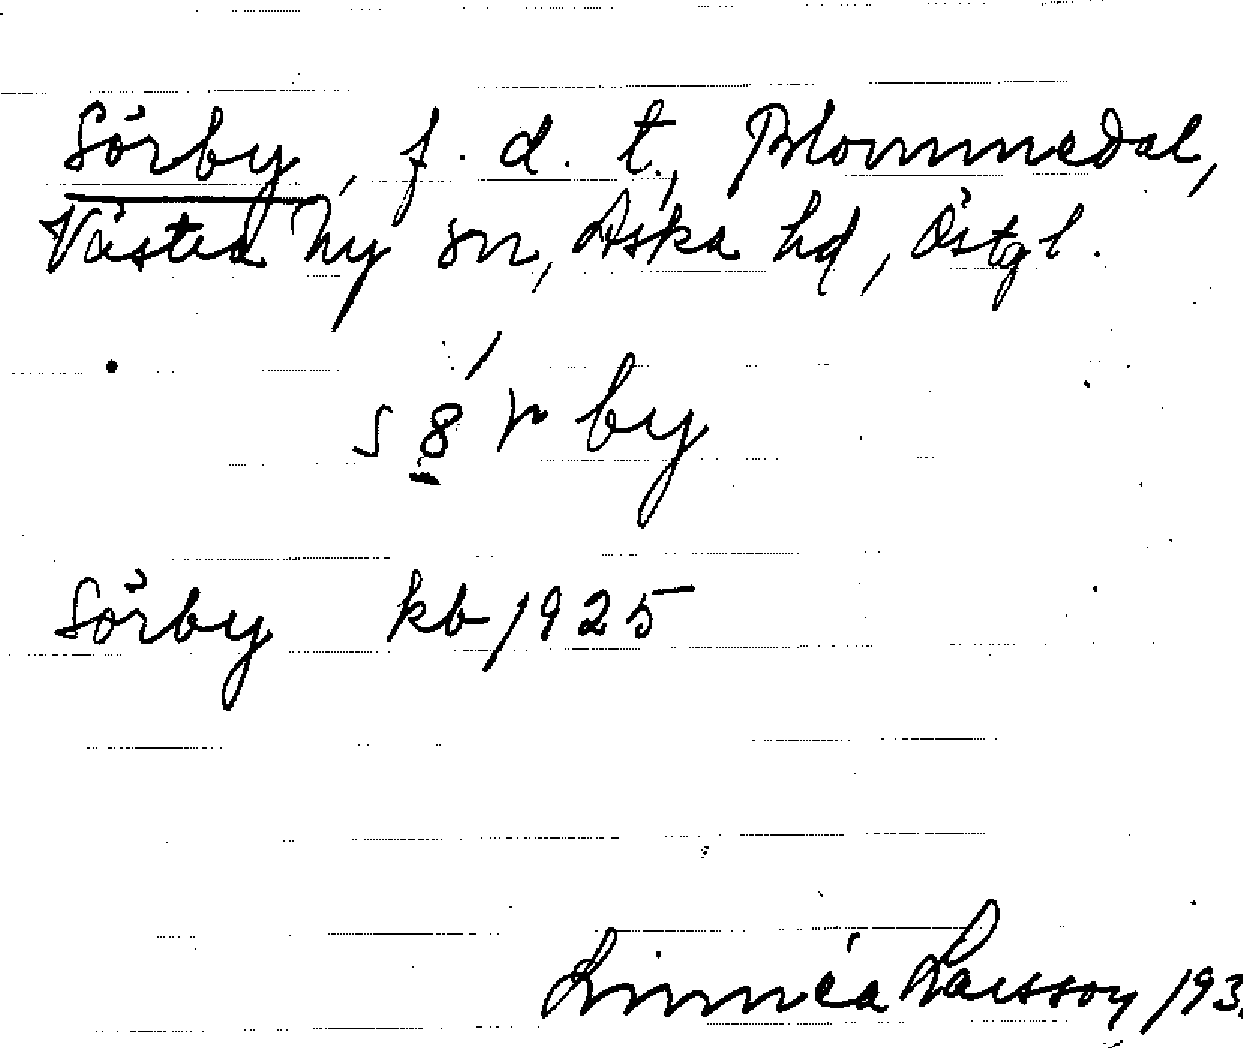 Sörby, f.d.t., Blommedal,
Västra Ny sn, Aska hd, Östgl.
s8̱́r by
Sörby kb 1925
Linnéa Larsson 193